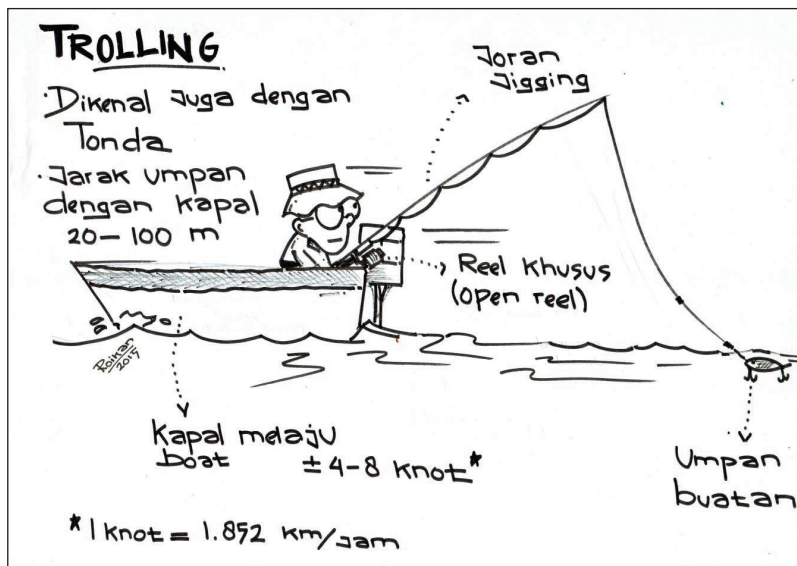 TROLLING
· Dikenal Juga dengan
Tonda
· Jarak umpan
dengan kapal
20-100 m
Joran
Jigging
Reel Khusus
(open reel)
Roikan
2015
Kapal melaju
boat ± 4-8 knot*
Umpan
buatan
* 1 knot = 1.852 km/jam